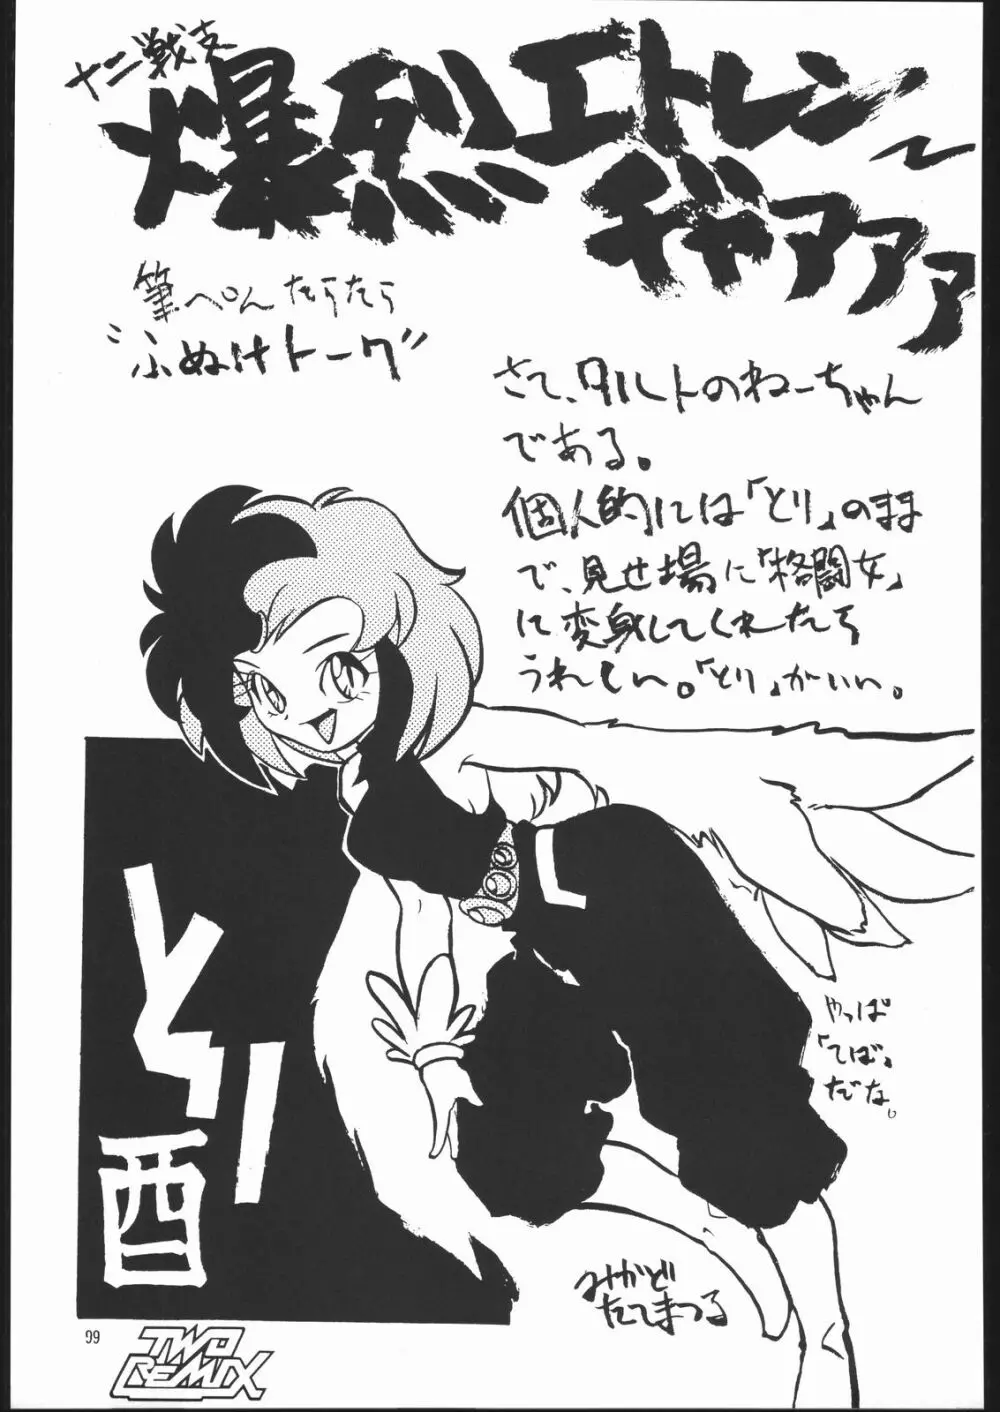 十二戦支
爆烈エトレン
ヂャアアァ〜
筆ぺんたらたら
"ふぬけトーク"
さて、タルトのねーちゃん
である。
個人的には「とり」のまま
で、見せ場に「格闘女」
に変身してくれたら
うれしい。「とり」がいい。
やっぱ
「てば」
だな。
とり
酉
みかど
たてまつる
99
TWO
REMIX